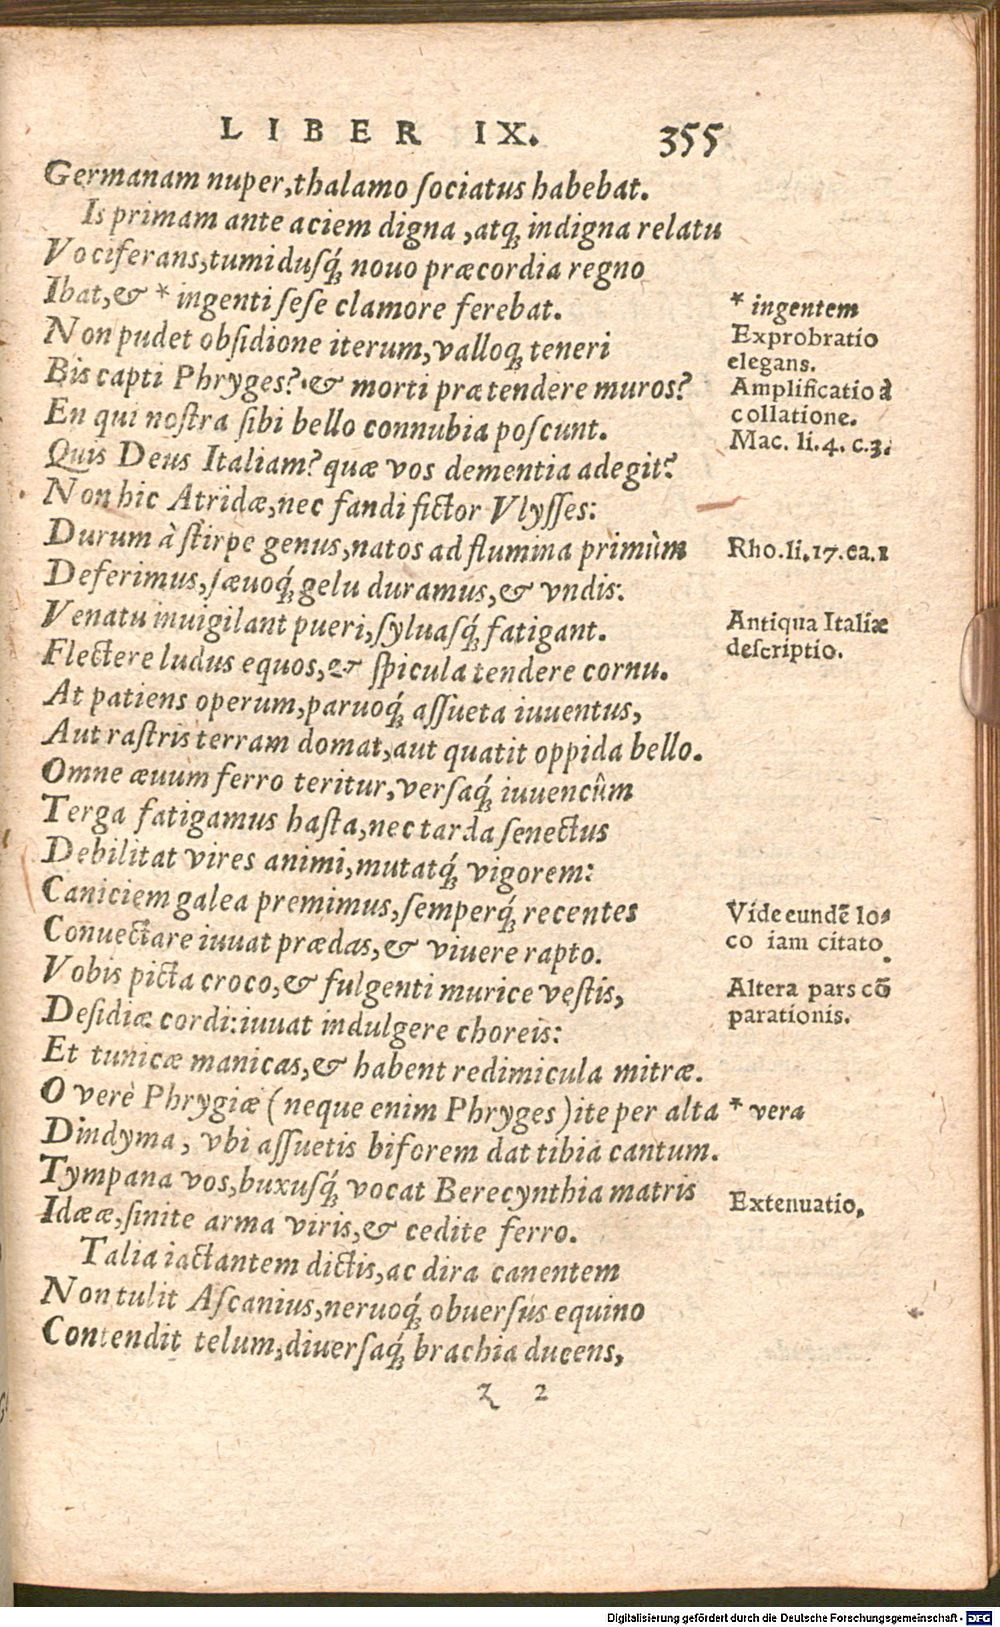 LIBER IX. 355
Germanam nuper, thalamo ſociatus habebat.
Is primam ante aciem digna, atq́; indigna relatu
Vociferans, tumidusq́; nouo præcordia regno
Ibat, & * ingenti ſeſe clamore ferebat.
* ingentem
Non pudet obſidione iterum, valloq́; teneri
Exprobratio
elegans.
Bis capti Phryges? & morti prætendere muros?
Amplificatio à
collatione.
En qui noſtra ſibi bello connubia poſcunt.
Mac. li. 4. c. 3.
Quis Deus Italiam? quæ vos dementia adegit?
Non hic Atridæ, nec fandi fictor Vlyſſes:
Durum à ſtirpe genus, natos ad flumina primùm
Rho. li. 17. ca. 1
Deferimus, ſæuoq́; gelu duramus, & vndis.
Venatu inuigilant pueri, ſyluaſq́; fatigant.
Antiqua Italiæ
deſcriptio.
Flectere ludus equos, & ſpicula tendere cornu.
At patiens operum, paruoq́; aſſueta iuuentus,
Aut raſtris terram domat, aut quatit oppida bello.
Omne æuum ferro teritur, verſaq́; iuuencûm
Terga fatigamus haſta, nec tarda ſenectus
Debilitat vires animi, mutatq́; vigorem:
Caniciem galea premimus, ſemperq́; recentes
Vide eundē lo-
co iam citato.
Conuectare iuuat prædas, & viuere rapto.
Vobis picta croco, & fulgenti murice veſtis,
Altera pars cō
parationis.
Deſidiæ cordi: iuuat indulgere choreis:
Et tunicæ manicas, & habent redimicula mitræ.
O verè Phrygiæ (neque enim Phryges) ite per alta
* vera
Dindyma, vbi aſſuetis biforem dat tibia cantum.
Tympana vos, buxuſq́; vocat Berecynthia matris
Extenuatio.
Idææ, ſinite arma viris, & cedite ferro.
Talia iactantem dictis, ac dira canentem
Non tulit Aſcanius, neruoq́; obuerſus equino
Contendit telum, diuerſaq́; brachia ducens,
z 2
Digitalisierung gefördert durch die Deutsche Forschungsgemeinschaft - DFG